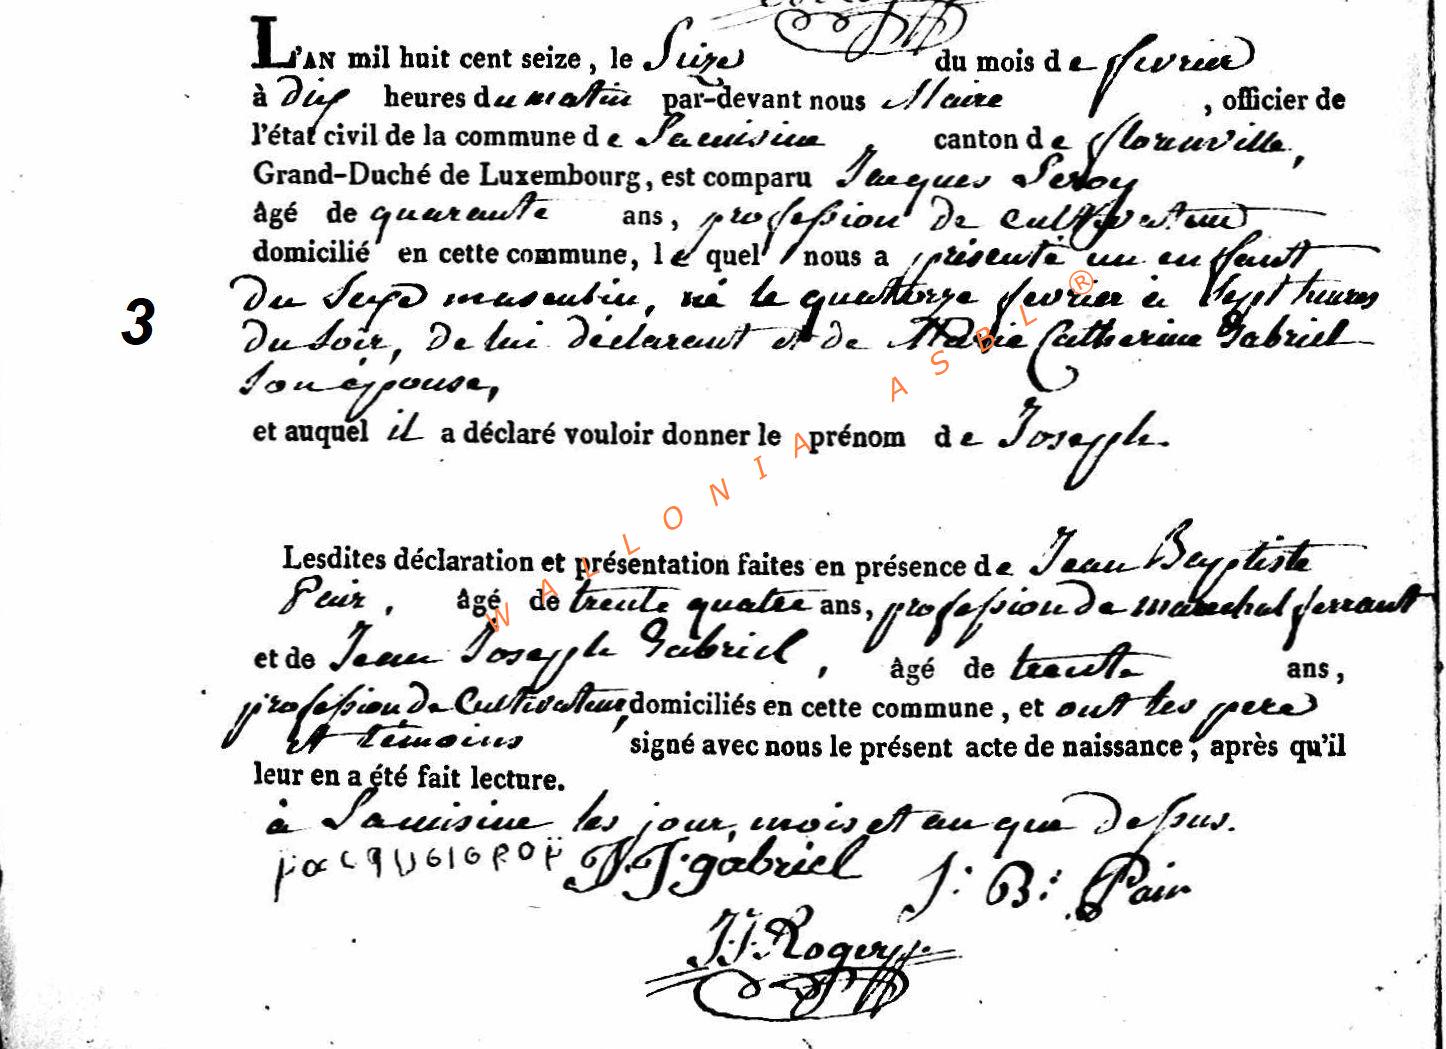 L'AN mil huit cent seize, le Seize du mois de fevrier
à dix heures du matin par-devant nous Maire , officier de
l'état civil de la commune de Lacuisine canton de florenville,
Grand-Duché de Luxembourg, est comparu Jacques Leroy
âgé de quarante ans, profession de cultivateur
domicilié en cette commune, lequel nous a présenté un enfant
3
du sexe masculin, né le quatorze fevrier à Sept heures
du soir, de lui déclarant et de Marie Catherine Gabriel
son épouse,
et auquel il a déclaré vouloir donner le prénom de Joseph.
WALLONIA ASBL®
Lesdites déclaration et présentation faites en présence de Jean Baptiste
Pair, âgé de trente quatre ans, profession de marechal ferrant
et de Jean Joseph Gabriel, âgé de trente ans,
profession de Cultivateur, domiciliés en cette commune, et ont les pere
et témoins signé avec nous le présent acte de naissance, après qu'il
leur en a été fait lecture.
à Lacuisine les jour, mois et an que dessus.
J. J. gabriel J: B: Pair
J. J. Roger